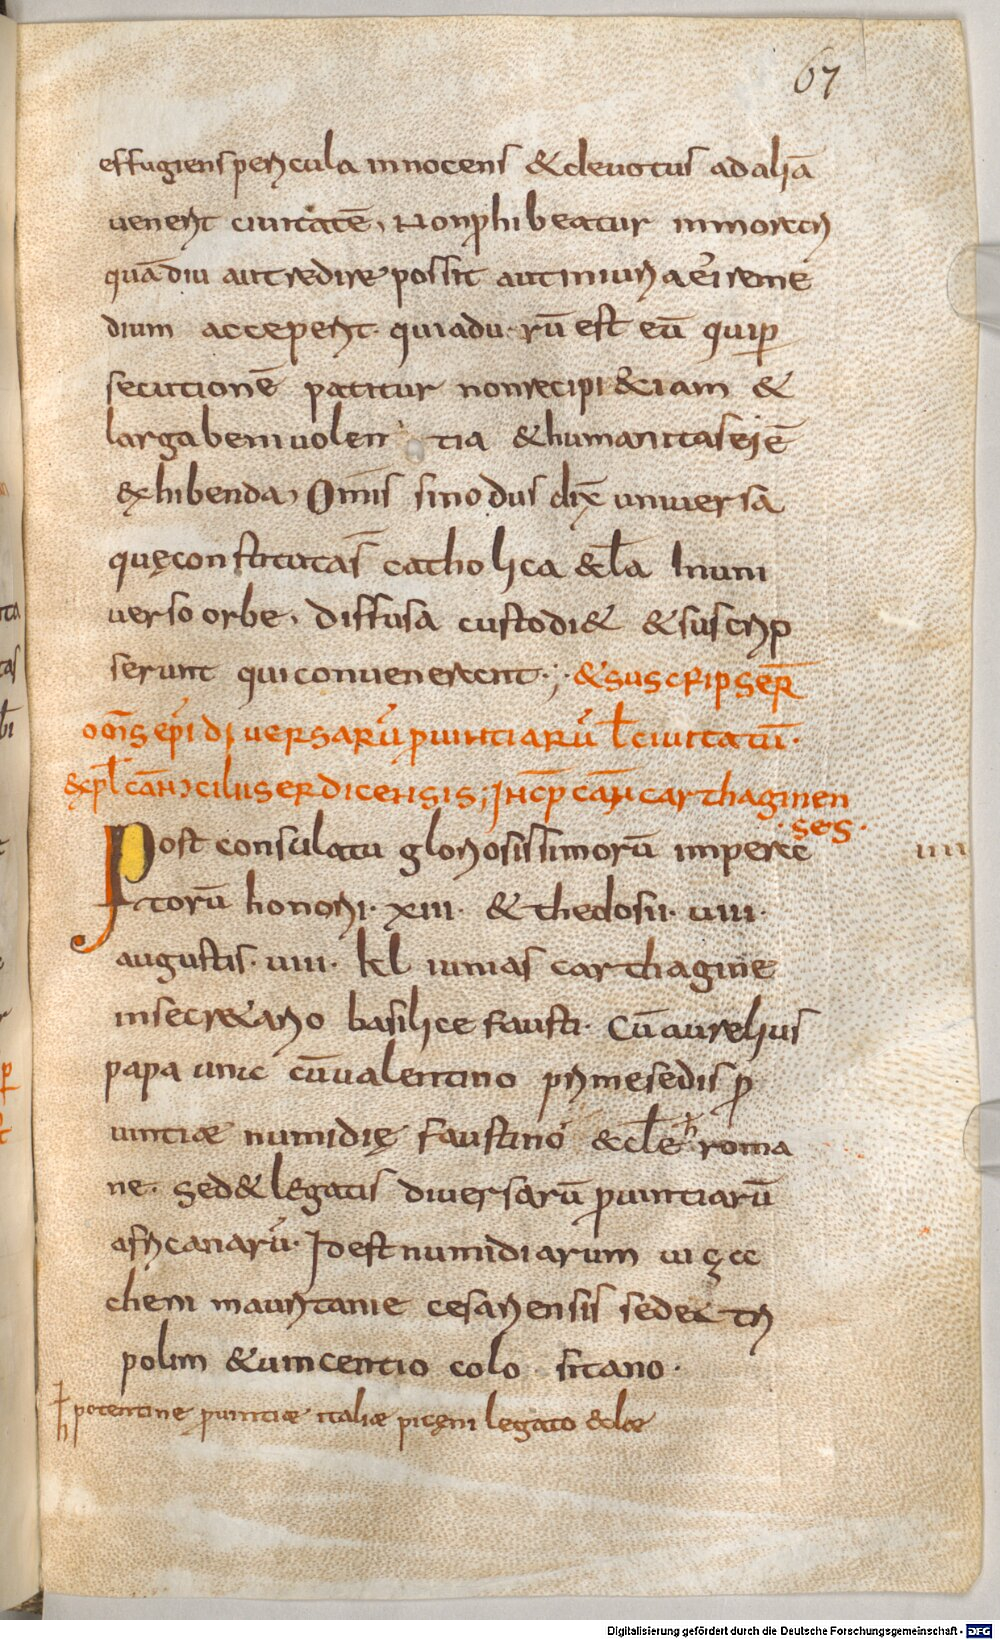 67
effugiens pericula innocens & devotus ad aliā
venerit civitatē, Non phibeatur inmorari
quādiu aut redire possit aut iniuria ei reme
dium acceperit. quia du rū est eū qui p
secutionē patitur non recipi &iam &
larga benivolen tia & humanitas ei ē
exhibenda, Omīs sinodus dix universa
quę constituta s catholica eccla In uni
verso orbe, diffusa custodi& & suscrip
serunt qui convenerunt; &suscripser
omīs epi diversarū pvintiarū l civitatū.
expl can cilii serdicensis; Incp can carthaginen
ses.
Post consulatu gloriosissimorū impera
torū honorii. xiii. & thedosii. viiii.
augustis. viii. kl iunias carthagine
in secretario basilice fausti. Cū aurelius
papa unic cū valentino prime sedis p
vintiae numidię faustino & ecle roma
ne. sed & legatis diversarū pvintiarū
africanarū. Id est numidiarum
cheni mauritanie cesariensis sede tri
polim & vincentio colo sitano.
h potentine pvintiae italiae piceni legato eclae
Digitalisierung gefördert durch die Deutsche Forschungsgemeinschaft - DFG